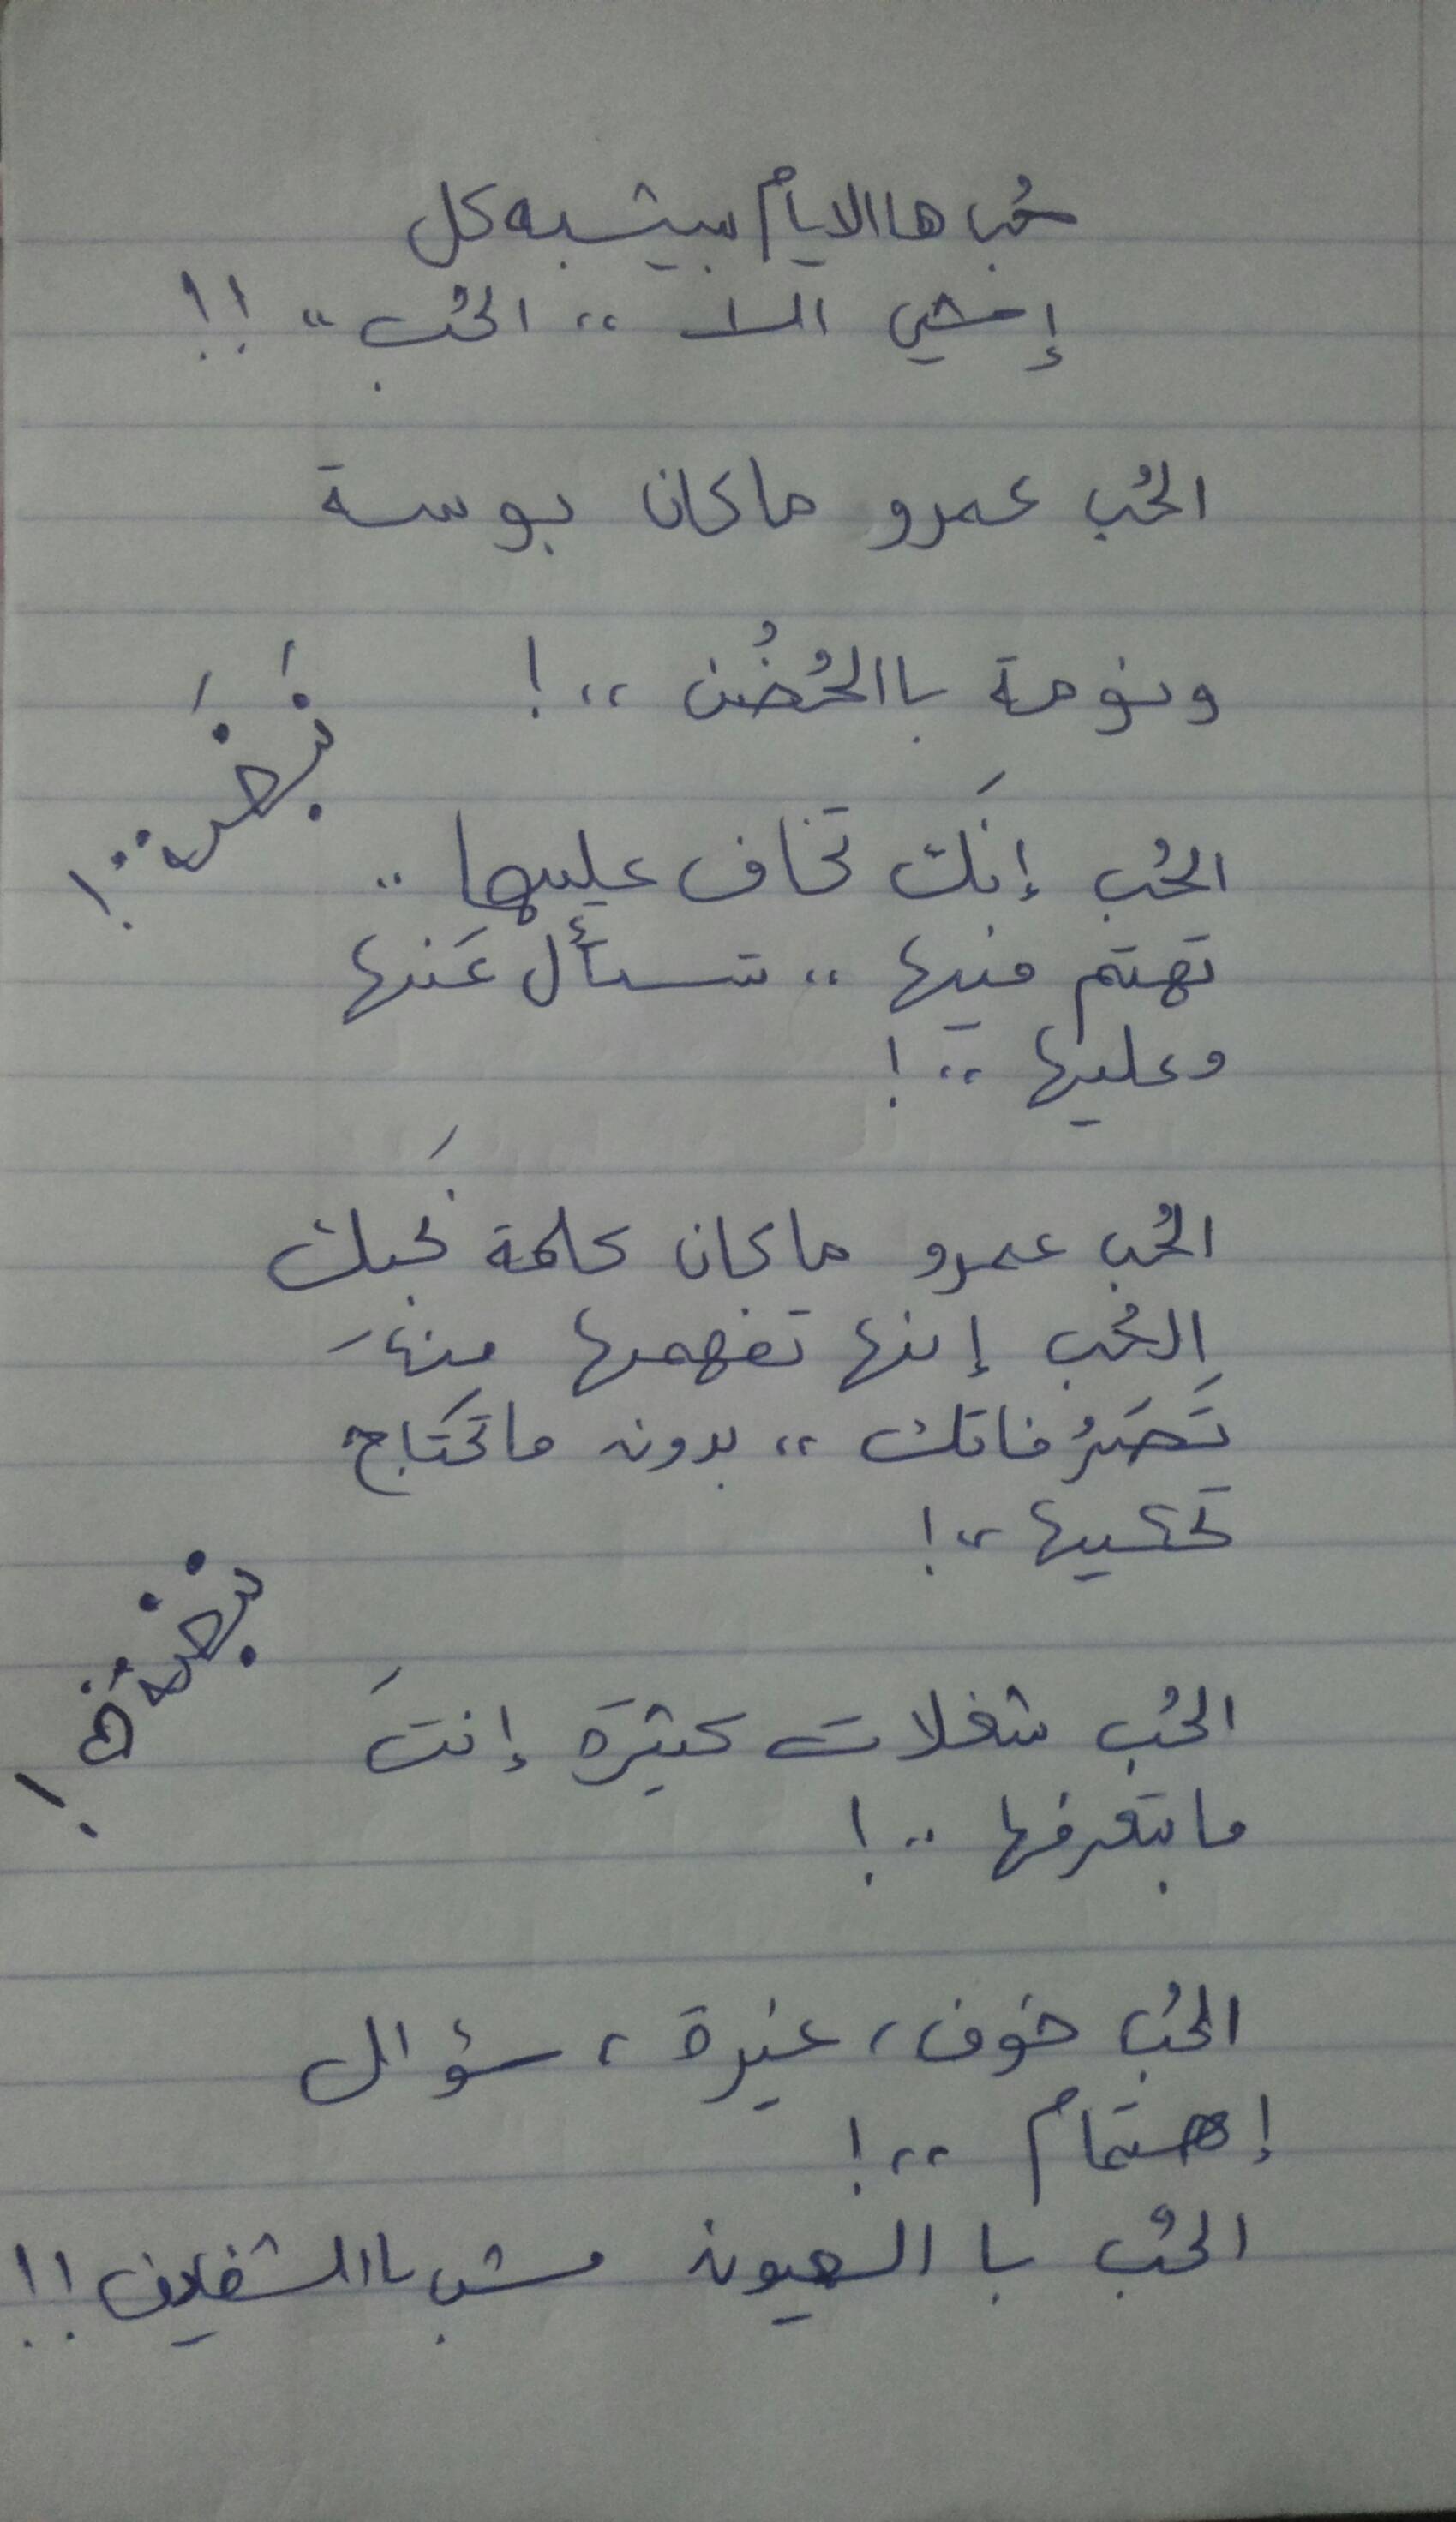 حُب هاالايام بيشبه كل
إشي الا ،، الحُب ،، !!
الحُب عمرو ماكان بوسة
ونومة باالحُضُن ،، !
نَبَض ..!
الحُب إنَك تخاف عليها ..
تهتم فيها ،، تسأل عَنها
وعليها ،، !
الحُب عمرو ماكان كلمة بَحبك
الحُب إنها تفهمها من
تَصَرُفاتك ،، بدون ماتحَتاج
تحكيها ،، !
نبض
الحُب شغلات كثيرة إنتَ
مابتعرفها ..!
الحُب خوف ، غيرة ، سؤال
إهتمام ،، !
الحُب با العيون مش باالشفايف !!